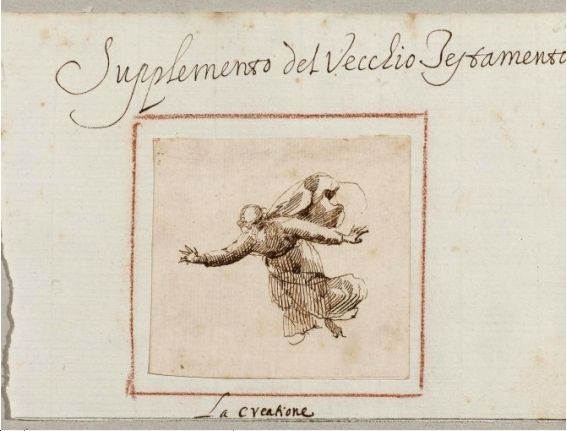 Supplemento del Vecchio Testamento
La creatione